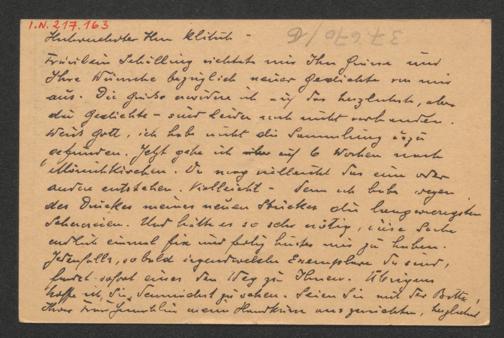 I.N. 217.163
37670/B
Hochverehrter Herr Klitsch -
Fräulein Schilling richtete mir Ihre Grüsse und
Ihre Wünsche bezüglich neuer Gedichte von mir
aus. Die Grüsse erwidere ich auf das herzlichste, aber
die Gedichte - sind leider noch nicht vorhanden.
Weiss Gott, ich habe nicht die Sammlung dazu
gefunden. Jetzt gehe ich auf 6 Wochen nach
Mönichkirchen. Da mag vielleicht das eine oder
andere entstehen. Vielleicht - denn ich habe wegen
des Druckes meines neuen Stückes die
Scherereien. Und hätte es so sehr nötig, diese Sache
endlich einmal fix und fertig hinter mir zu haben.
Jedenfalls, sobald irgendwelche Exemplare da sind,
findet sofort eines den Weg zu Ihnen. Übrigens
hoffe ich, Sie demnächst zu sehen. Seien Sie mit der Bitte,
Ihrer Frau Gemahlin meine Handküsse auszurichten, herzlichst